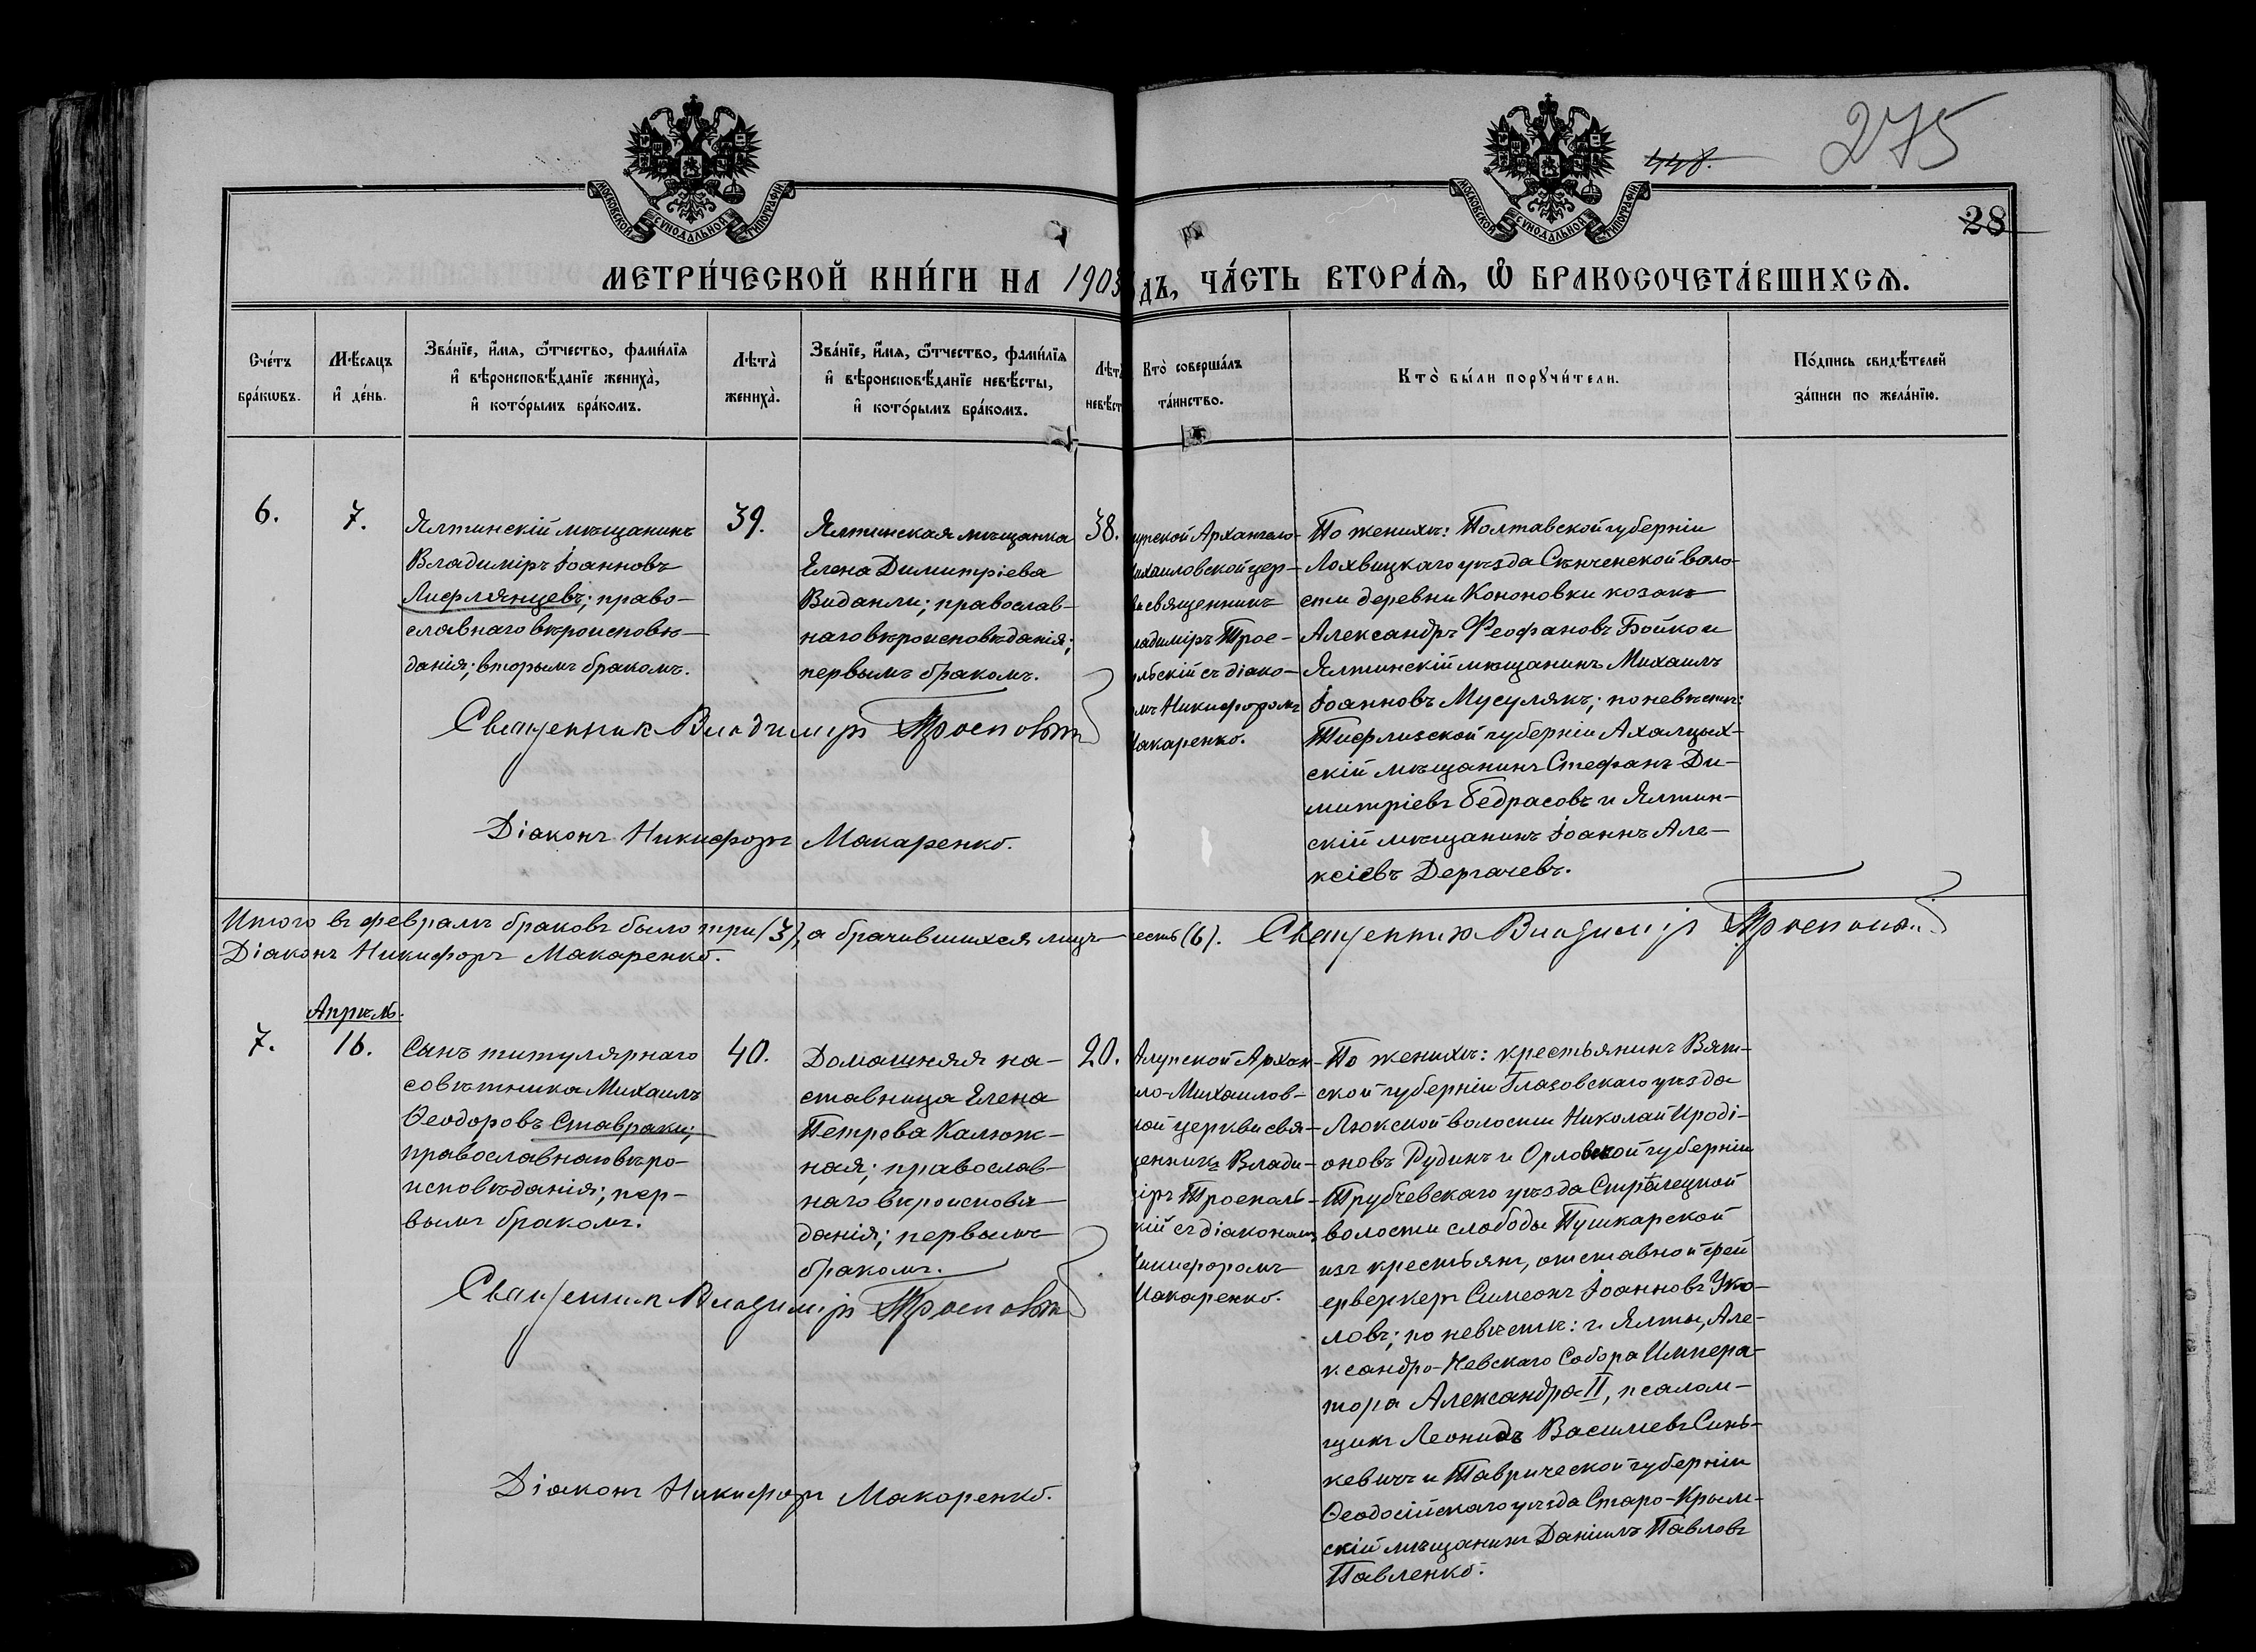 275
448.
28
МОСКОВСКОЙ СѴНОДАЛЬНОЙ ТИПОГРАФІИ
МОСКОВСКОЙ СѴНОДАЛЬНОЙ ТИПОГРАФІИ
МЕТРИ́ЧЕСКОЙ КНИ́ГИ НА 1903
ДЪ, ЧА́СТЬ ВТОРА́Я, Ѽ БРАКОСОЧЕТА́ВШИХСЯ.
Сче́тъ бра́кѡвъ.
Мѣ́сяцъ и҆ де́нь.
Зва́нїе, и҆́мя, ѻ҆́тчество, фами́лїя и҆ вѣроисповѣ́данїе жениха̀, и҆ кото́рымъ бра́комъ.
Лѣта̀ жениха̀.
Зва́нїе, и҆́мя, ѻ҆́тчество, фами́лїя и҆ вѣроисповѣ́данїе невѣ́сты, и҆ кото́рымъ бра́комъ.
Лѣта невѣст
Кто̀ соверша́лъ та́инство.
Кто̀ бы́ли порꙋчи́тели.
По́дпись свидѣ́телей за́писи по жела́нїю.
6.
7.
Ялтинскій мѣщанинъ
Владиміръ Іоанновъ
Лифлянцевъ; право-
славнаго вѣроисповѣ-
данія; вторымъ бракомъ.
39.
Ялтинская мѣщанка
Елена Димитріева
Видакли; православ-
наго вѣроисповѣданія;
первымъ бракомъ.
38.
упской Архангело-
ихаиловской цер-
священникъ
ладиміръ Трое-
льскій съ діако-
мъ Никифоромъ
акаренко.
По женихѣ: Полтавской губерніи
Лохвицкаго уѣзда Сѣнченской воло-
сти деревни Кононовки козакъ
Александръ Феофановъ Бойко и
Ялтинскій мѣщанинъ Михаилъ
Іоанновъ Мусулякъ; по невѣстѣ:
Тифлизской губерніи Ахалцых-
скій мѣщанинъ Стефанъ Ди-
митріевъ Бедрасовъ и Ялтин-
скій мѣщанинъ Іоаннъ Але-
ксіевъ Дергачевъ.
Священник Владимір
Діаконъ Никифоръ Макаренко.
Итого въ февралѣ браковъ было три (3), а брачившихся лицъ
шесть (6). Священник Владимір
Діаконъ Никифоръ Макаренко.
Апрѣль.
7.
16.
Сынъ титулярнаго
совѣтника Михаилъ
Ѳеодоровъ Ставраки;
православнаго вѣро-
исповѣданія; пер-
вымъ бракомъ.
40.
Домашняя на-
ставница Елена
Петрова Калюж-
ная; православ-
наго вѣроисповѣ-
данія; первымъ
бракомъ.
20.
Алупской Архан-
ло-Михаилов-
кой церкви свя-
енникъ Влади-
іръ Троеполь-
кій съ діакономъ
икифоромъ
Макаренко.
По женихѣ: крестьянинъ Вят-
ской губерніи Глазовскаго уѣзда
Люкской волости Николай Ироді-
оновъ Рудинъ и Орловской губерніи
Трубчевскаго уѣзда Стрѣлецкой
волости слободы Пушкарской
изъ крестьянъ, отставной фей
ерверкеръ Симеонъ Іоанновъ Уко-
ловъ; по невѣстѣ: г. Ялты, Але-
ксандро-Невскаго Собора Импера-
тора Александра II, псалом-
щикъ Леонидъ Василіевъ Синь-
кевичъ и Таврической губерніи
Ѳеодосійскаго уѣзда Старо-Крым-
скій мѣщанинъ Даніилъ Павловъ
Павленко.
Священник Владимір
Діаконъ Никифоръ Макаренко.